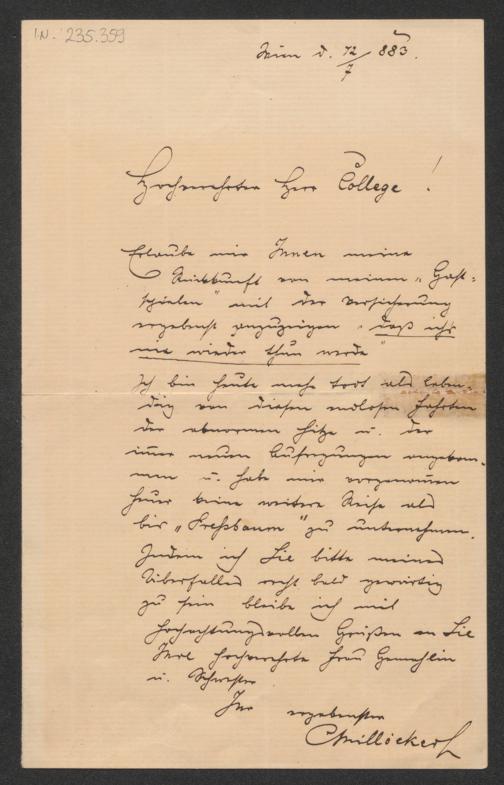 I.N. 235.359
Wien d. 12/7 883.
Hochverehrter Herr College!
Erlaube mir Ihnen meine
Rückkunft von meinen „Gast-
spielen" mit der Versicherung
ergebenst anzuzeigen „daß ich's
nie wieder thun werde"
Ich bin heute mehr todt als leben-
dig von diesen endlosen Fahrten
der abnormen Hitze u. der
immer neuen Aufregungen angekom-
men u. habe mir vorgenommen
heuer keine weitere Reise als
bis „Preßbaum" zu unternehmen.
Indem ich Sie bitte meines
Überfalles recht bald gewärtig
zu sein bleibe ich mit
hochachtungsvollen Grüßen an Sie
Ihre hochverehrte Frau Gemahlin
u. Schwester
Ihr ergebenster
CMillöcker